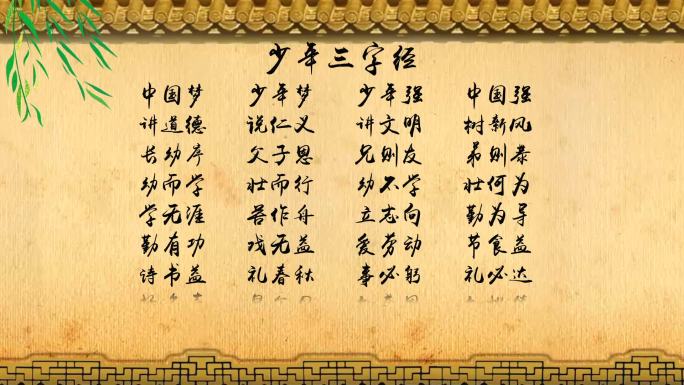 少年三字经
中国梦 少年梦 少年强 中国强
讲道德 说仁义 讲文明 树新风
长幼序 父子恩 兄则友 弟则恭
幼而学 壮而行 幼不学 壮何为
学无涯 苦作舟 立志向 勤为导
勤有功 戏无益 爱劳动 节食益
诗书益 礼春秋 事必躬 礼必达